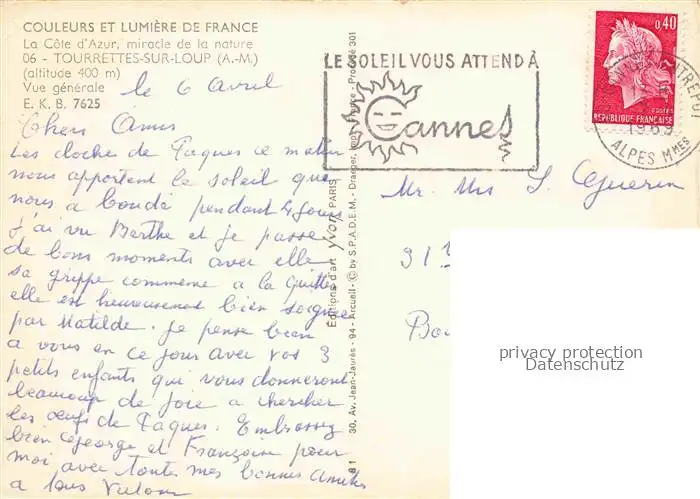 COULEURS ET LUMIÈRE DE FRANCE
La Côte d'Azur, miracle de la nature
06 - TOURRETTES-SUR-LOUP (A.-M.)
(altitude 400 m)
Vue générale
E. K. B. 7625
le 6 Avril
Chers Amis
Les cloches de Paques ce matin
nous apportent le soleil que
nous a boudé pendant 4 jours
J'ai vu Berthe et je passe
de bons moments avec elle
sa grippe commence a la quitter
elle est heureusement bien soignée
par Matilde. Je pense bien
a vous en ce jour avec vos 3
petits enfants qui vous donneront
beaucoup de joie a chercher
les œufs de Paques. Embrassez
bien George et Françoise pour
moi avec toutes mes bonnes Amitiés
a tous
LE SOLEIL VOUS ATTEND À
Cannes
0,40
POSTES
REPUBLIQUE FRANÇAISE
1969
ALPES MMES
Mr. Ms
31
privacy protection
Datenschutz
Editions d'art yvon PARIS
30, Av. Jean-Jaurès - 94 - Arcueil - © by S.P.A.D.E.M. - Draeger, Imp. - France - Procédé 301
81